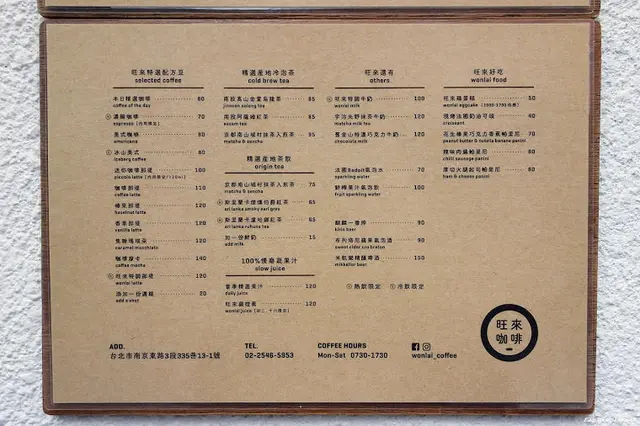 旺來特選配方豆
selected coffee
本日精選咖啡 80
coffee of the day
濃縮咖啡 70
espresso
美式咖啡 80
americano
冰山美式 80
iceberg coffee
迷你咖啡那提 100
piccolo latte
咖啡那提 110
coffee latte
榛果那提 120
hazelnut latte
香草那提 120
vanilla latte
焦糖瑪琪朵 120
caramel macchiato
咖啡摩卡 140
coffee mocha
旺來特調那提 120
wanlai latte
添加一份濃縮 20
add a shot
精選產地冷泡茶
cold brew tea
南投高山金萱烏龍茶 85
jinxuan oolong tea
南投阿薩姆紅茶 85
assam tea
京都南山城村抹茶入煎茶 95
matcha & sencha
精選產地茶飲
origin tea
京都南山城村抹茶入煎茶 75
matcha & sencha
斯里蘭卡煙燻伯爵紅茶 65
sri lanka smoky earl grey
斯里蘭卡盧哈娜紅茶 65
sri lanka ruhuna tea
加一份鮮奶 15
add milk
100%慢磨蔬果汁
slow juice
當季精選果汁 120
daily juice
旺來蘋檀蕉 120
wanlai juice
旺來還有
others
旺來特調牛奶 100
wanlai milk
宇治丸野抹茶牛奶 120
matcha milk tea
舊金山特濃巧克力牛奶 120
chocolate milk
法國Badoit氣泡水 70
sparkling water
鮮榨果汁氣泡飲 100
fruit sparkling water
麒麟一番搾 90
kirin beer
布列塔尼蘋果氣泡酒 90
sweet cider sca breton
米凱樂精釀啤酒 150
mikkeller beer
熱飲限定 冷飲限定
旺來好吃
wanlai food
旺來雞蛋糕 50
wanlai eggcake
現烤法國奶油可頌 40
croissant
花生榛果巧克力香蕉帕里尼 70
peanut butter & nutella banana panini
辣味肉醬帕里尼 80
chilli sausage panini
厚切火腿起司帕里尼 80
ham & cheese panini
旺來
咖啡
ADD. TEL. COFFEE HOURS
台北市南京東路3段335巷13-1號 02-2546-5953 Mon-Sat 0730-1730 wanlai_coffee